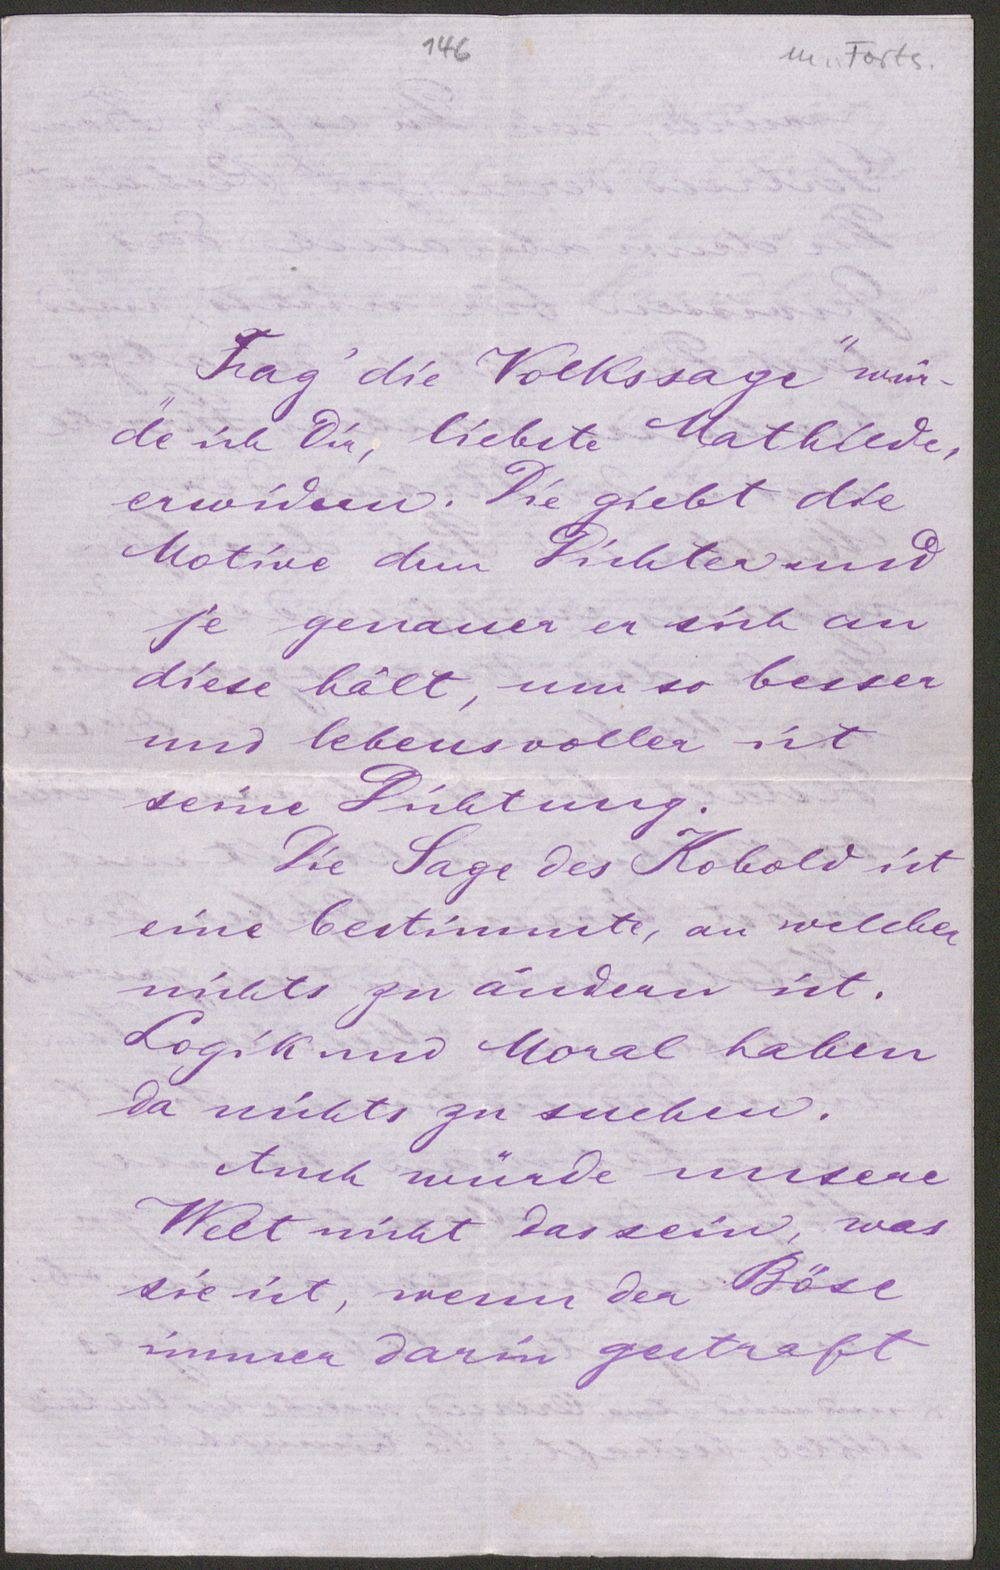 146
m. Forts.
„Frag' die Volkssage“ wür-
de ich Dir, liebste Mathilde,
erwidern. Die giebt die
Motive dem Dichter und
je genauer er sich an
diese hält, um so besser
und lebensvoller ist
seine Dichtung.
Die Sage des Kobold ist
eine bestimmte, an welcher
nichts zu ändern ist.
Logik und Moral haben
da nichts zu suchen.
Auch würde unsere
Welt nicht das sein, was
sie ist, wenn der Böse
immer darin gestraft